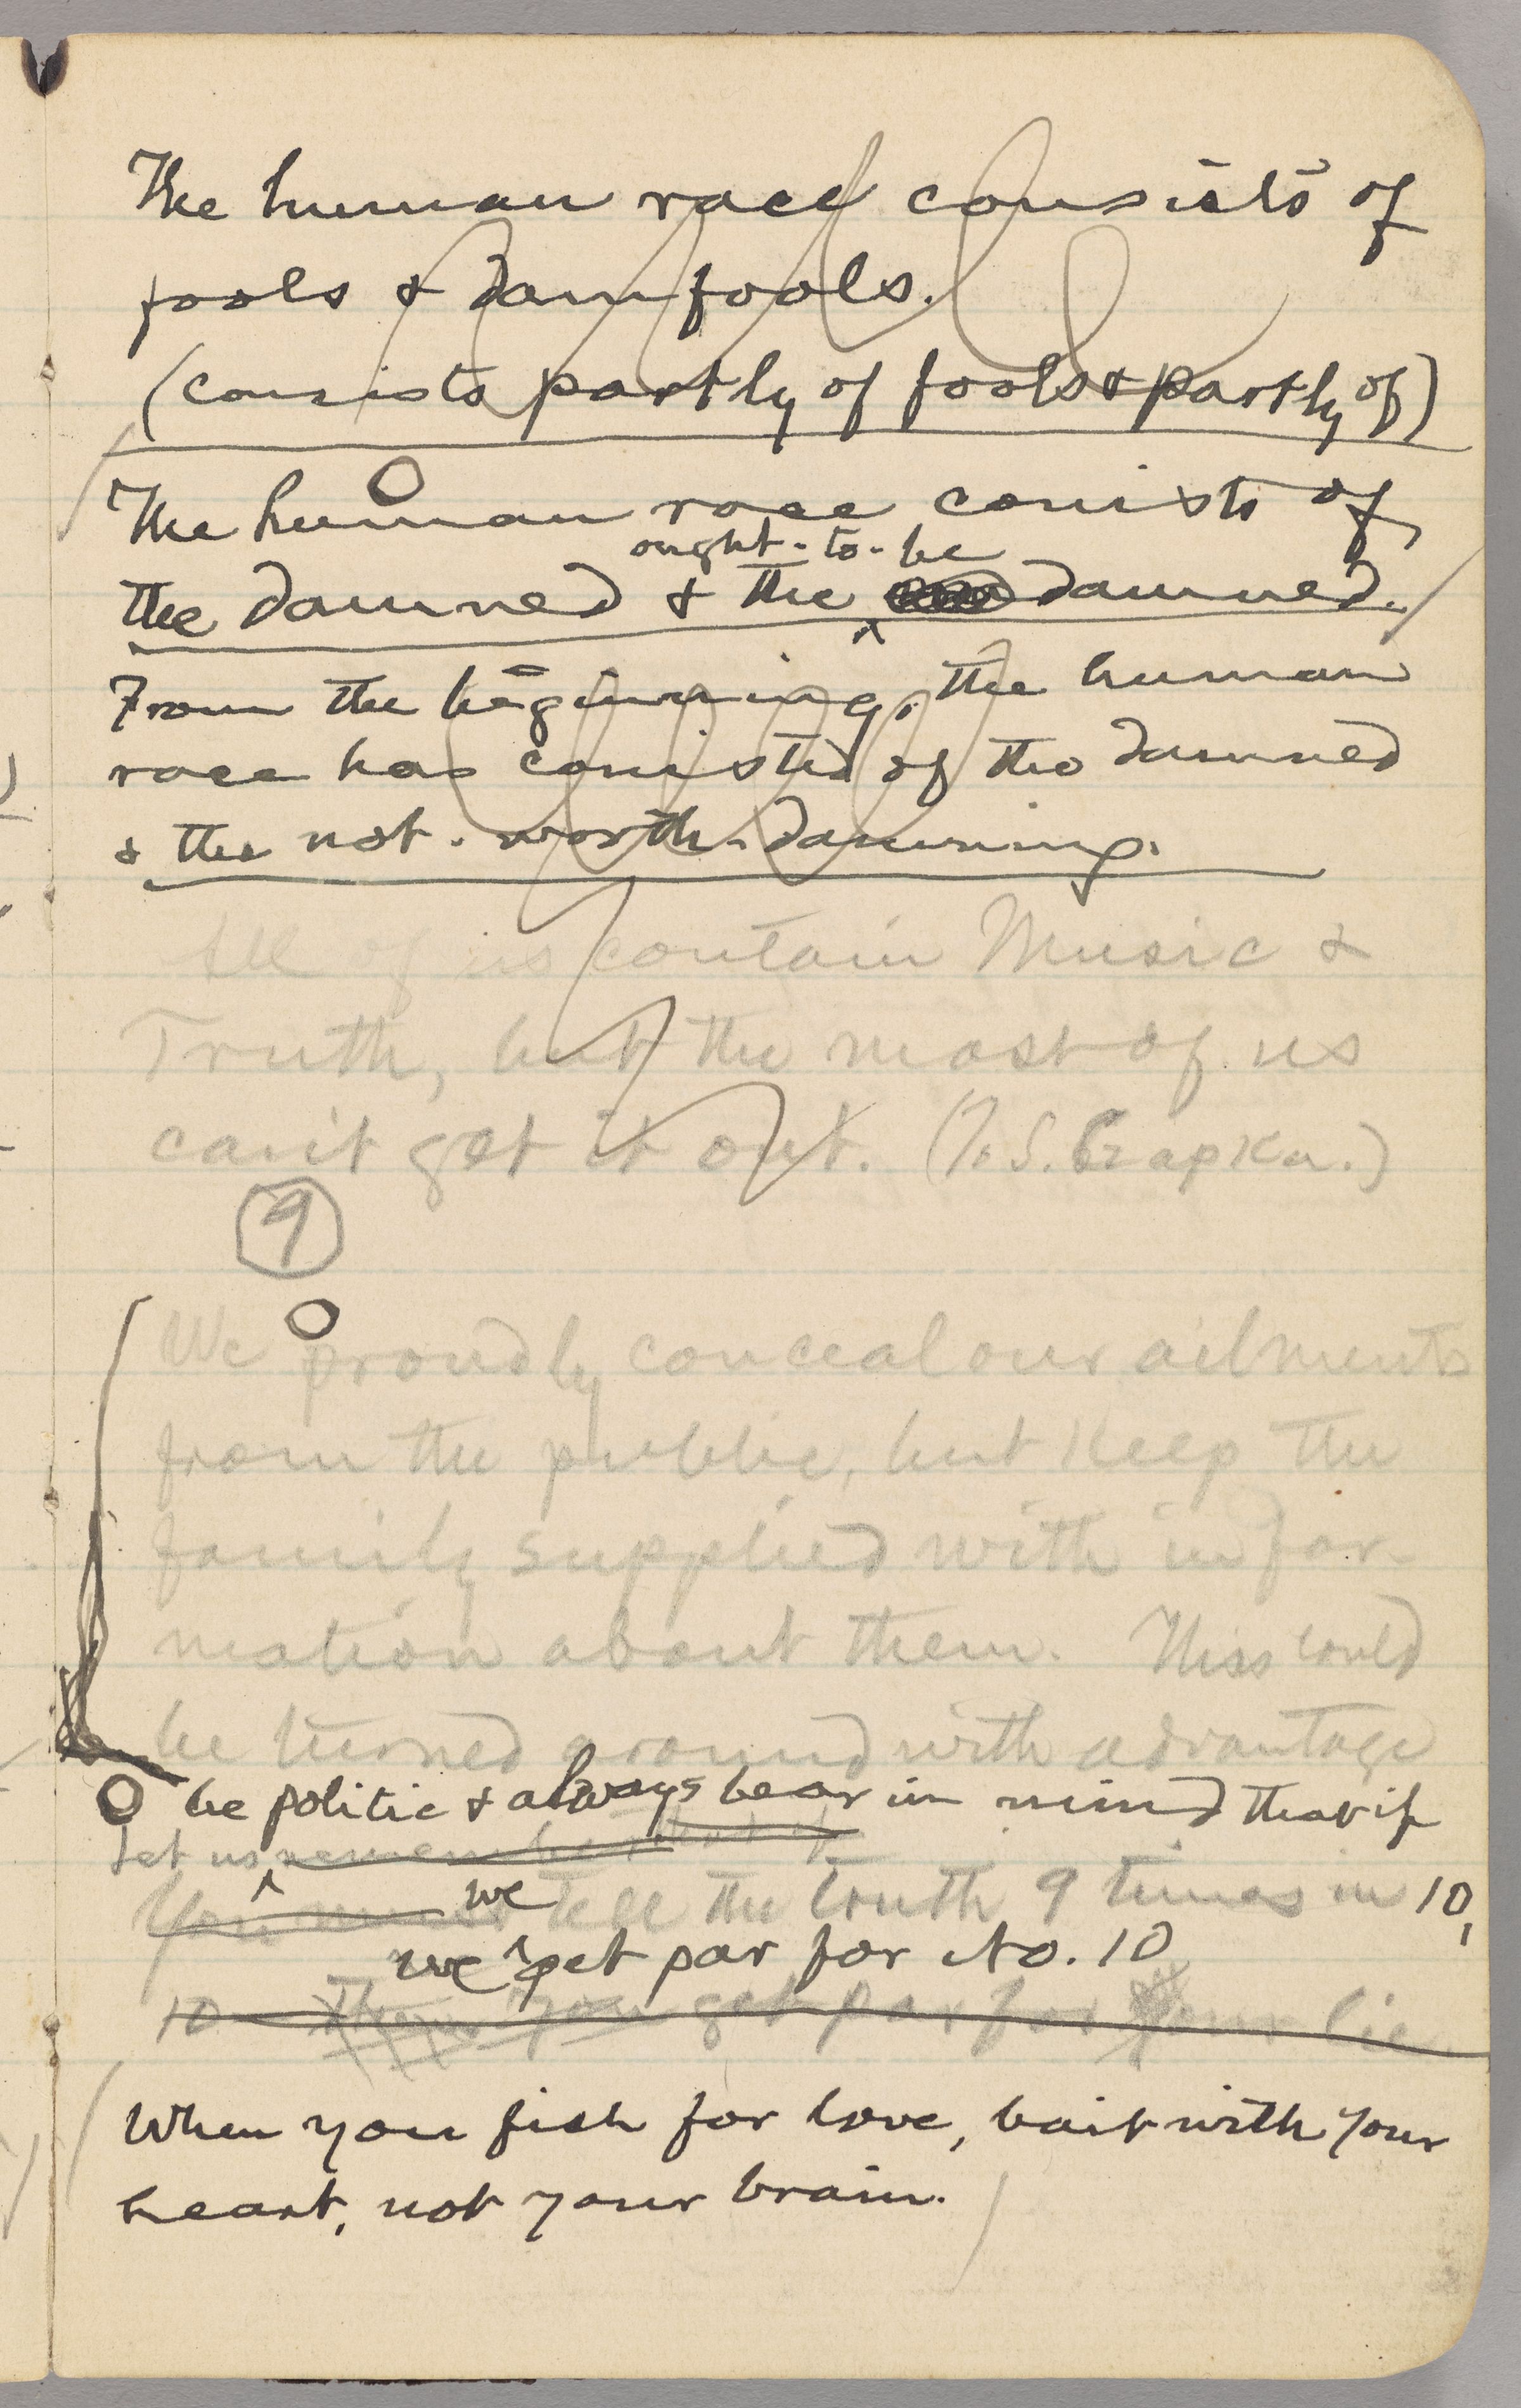 The human race consists of
fools & damfools.
(consists partly of fools & partly of)
The human race consists of
ought-to-be
the damned & the damned.
From the beginning, the human
race has consisted of the damned
& the not-worth-damning.
All of us contain Music &
Truth, but the most of us
can't get it out.
9
We proudly conceal our ailments
from the public, but keep the
family supplied with infor-
mation about them. This could
be turned around with advantage
be politic & always bear in mind that if
Let us remember that if
You must we tell the truth 9 times in 10,
we get par for No. 10
10 then you get par for your lie
When you fish for love, bait with your
heart, not your brain.